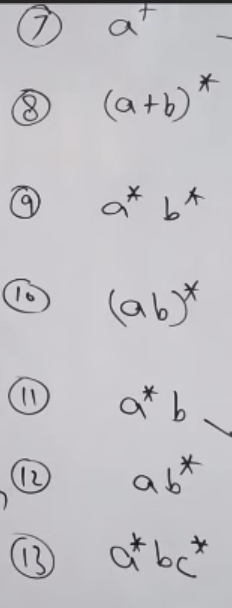 ⑦ a⁺
⑧ (a+b)*
⑨ a* b*
⑩ (ab)*
⑪ a* b
⑫ ab*
⑬ a* bc*